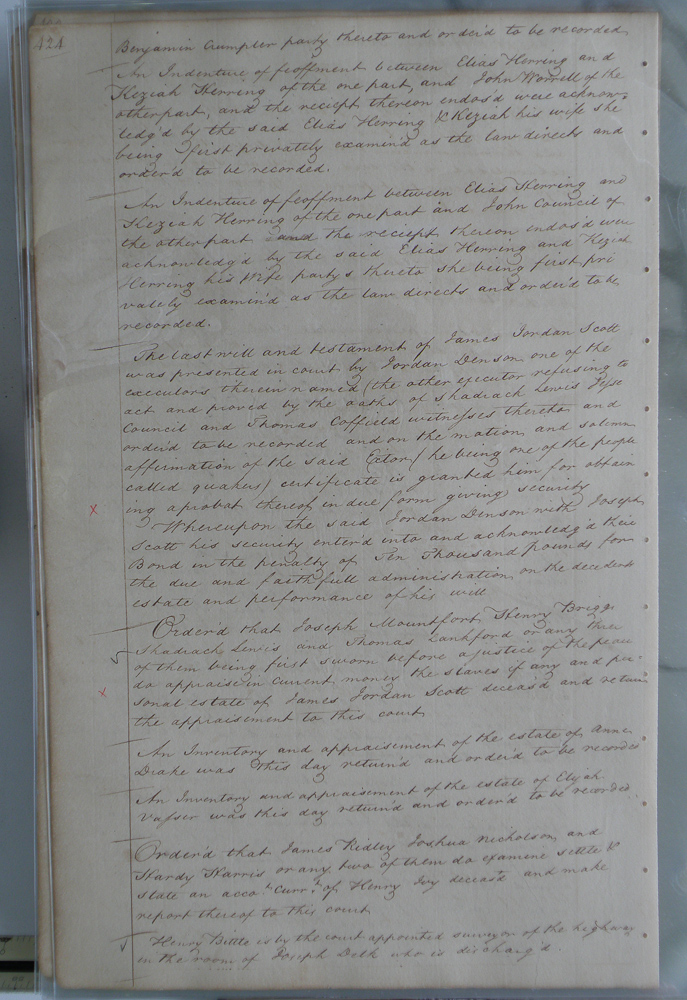 424
Benjamin Crumpler party thereto and order'd to be recorded
An Indenture of feoffment between Elias Herring and
Keziah Herring of the one part, and John Worrell of the
other part, and the reciept thereon endos'd were acknow-
ledg'd by the said Elias Herring & Keziah his wife she
being first privately examin'd as the law directs and
order'd to be recorded.
An Indenture of feoffment between Elias Herring and
Keziah Herring of the one part and John Council of
the other part and the reciept thereon endos'd were
acknowledg'd by the said Elias Herring and Keziah
Herring his Wife partys thereto she being first pri
vately examin'd as the law directs and order'd to be
recorded.
The last will and testament of James Jordan Scott
was presented in court by Jordan Denson one of the
executors therein named (the other executor refusing to
act and proved by the oaths of Shadrach Lewis
Council and Thomas Coffield witnesses thereto and
order'd to be recorded and on the motion and solemn
affirmation of the said Exctor (he being one of the people
called quakers) certificate is granted him for obtain
ing a probat thereof in due form giving security
x
Whereupon the said Jordan Denson with Joseph
Scott his security enter'd into and acknowledg'd their
Bond in the penalty of Ten Thousand pounds for
the due and faithfull administration on the decedents
estate and performance of his will
Order'd that Joseph Mountfort Henry Briggs
Shadrach Lewis and Thomas Lankford or any three
of them being first sworn before a justice of the peace
do appraise in current money the slaves if any and per-
x
sonal estate of James Jordan Scott deceas'd and return
the appraisement to this court
An Inventory and appraisement of the estate of Anne
Drake was this day return'd and order'd to be recorded
An Inventory and appraisement of the estate of Elijah
Vasser was this day return'd and order'd to be recorded
Order'd that James Ridley Joshua Nicholson and
Hardy Harris or any two of them do examine settle &
state an acco.t Curr.t of Henry Ivy deceas'd and make
report thereof to this court
Henry Bittle is by the court appointed surveyor of the highway
in the room of Joseph Delk who is discharg'd.